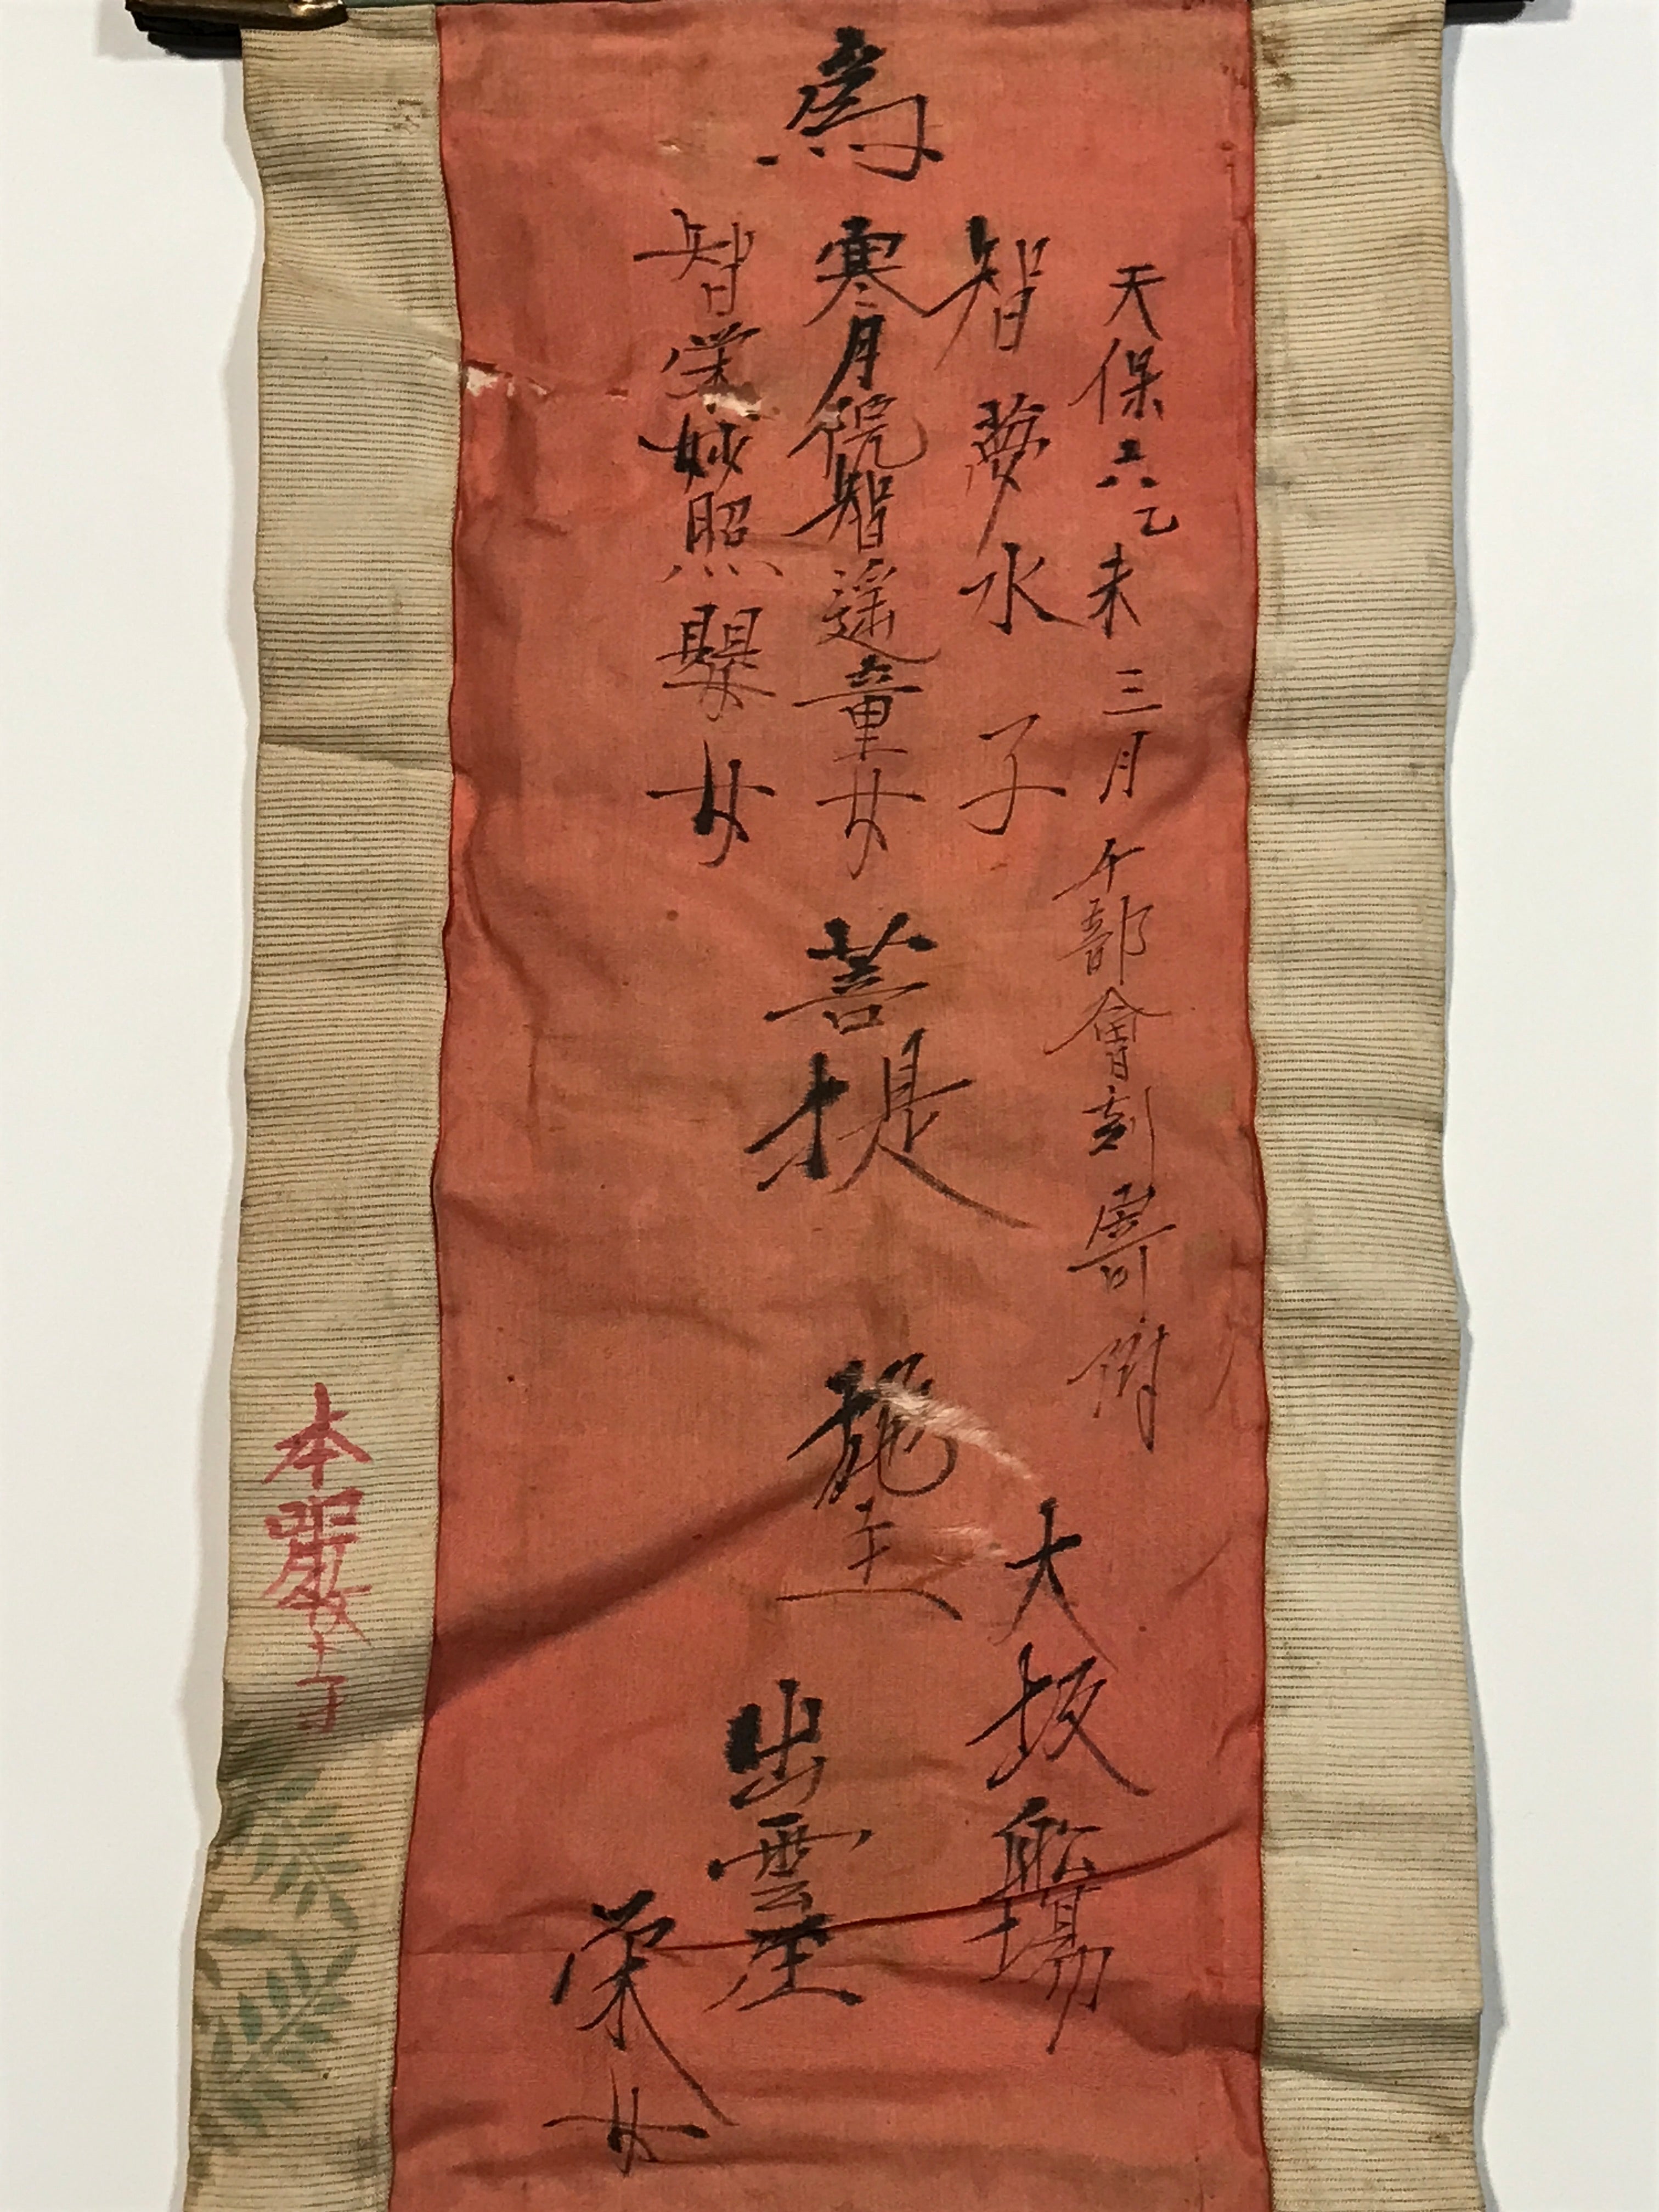 天保六乙未三月千部會刻寄附
為
智夢水子
寒月智遥童女
智栄妙照嬰女
菩提
施主
大坂船場
出雲屋
栄女
本嚴寺